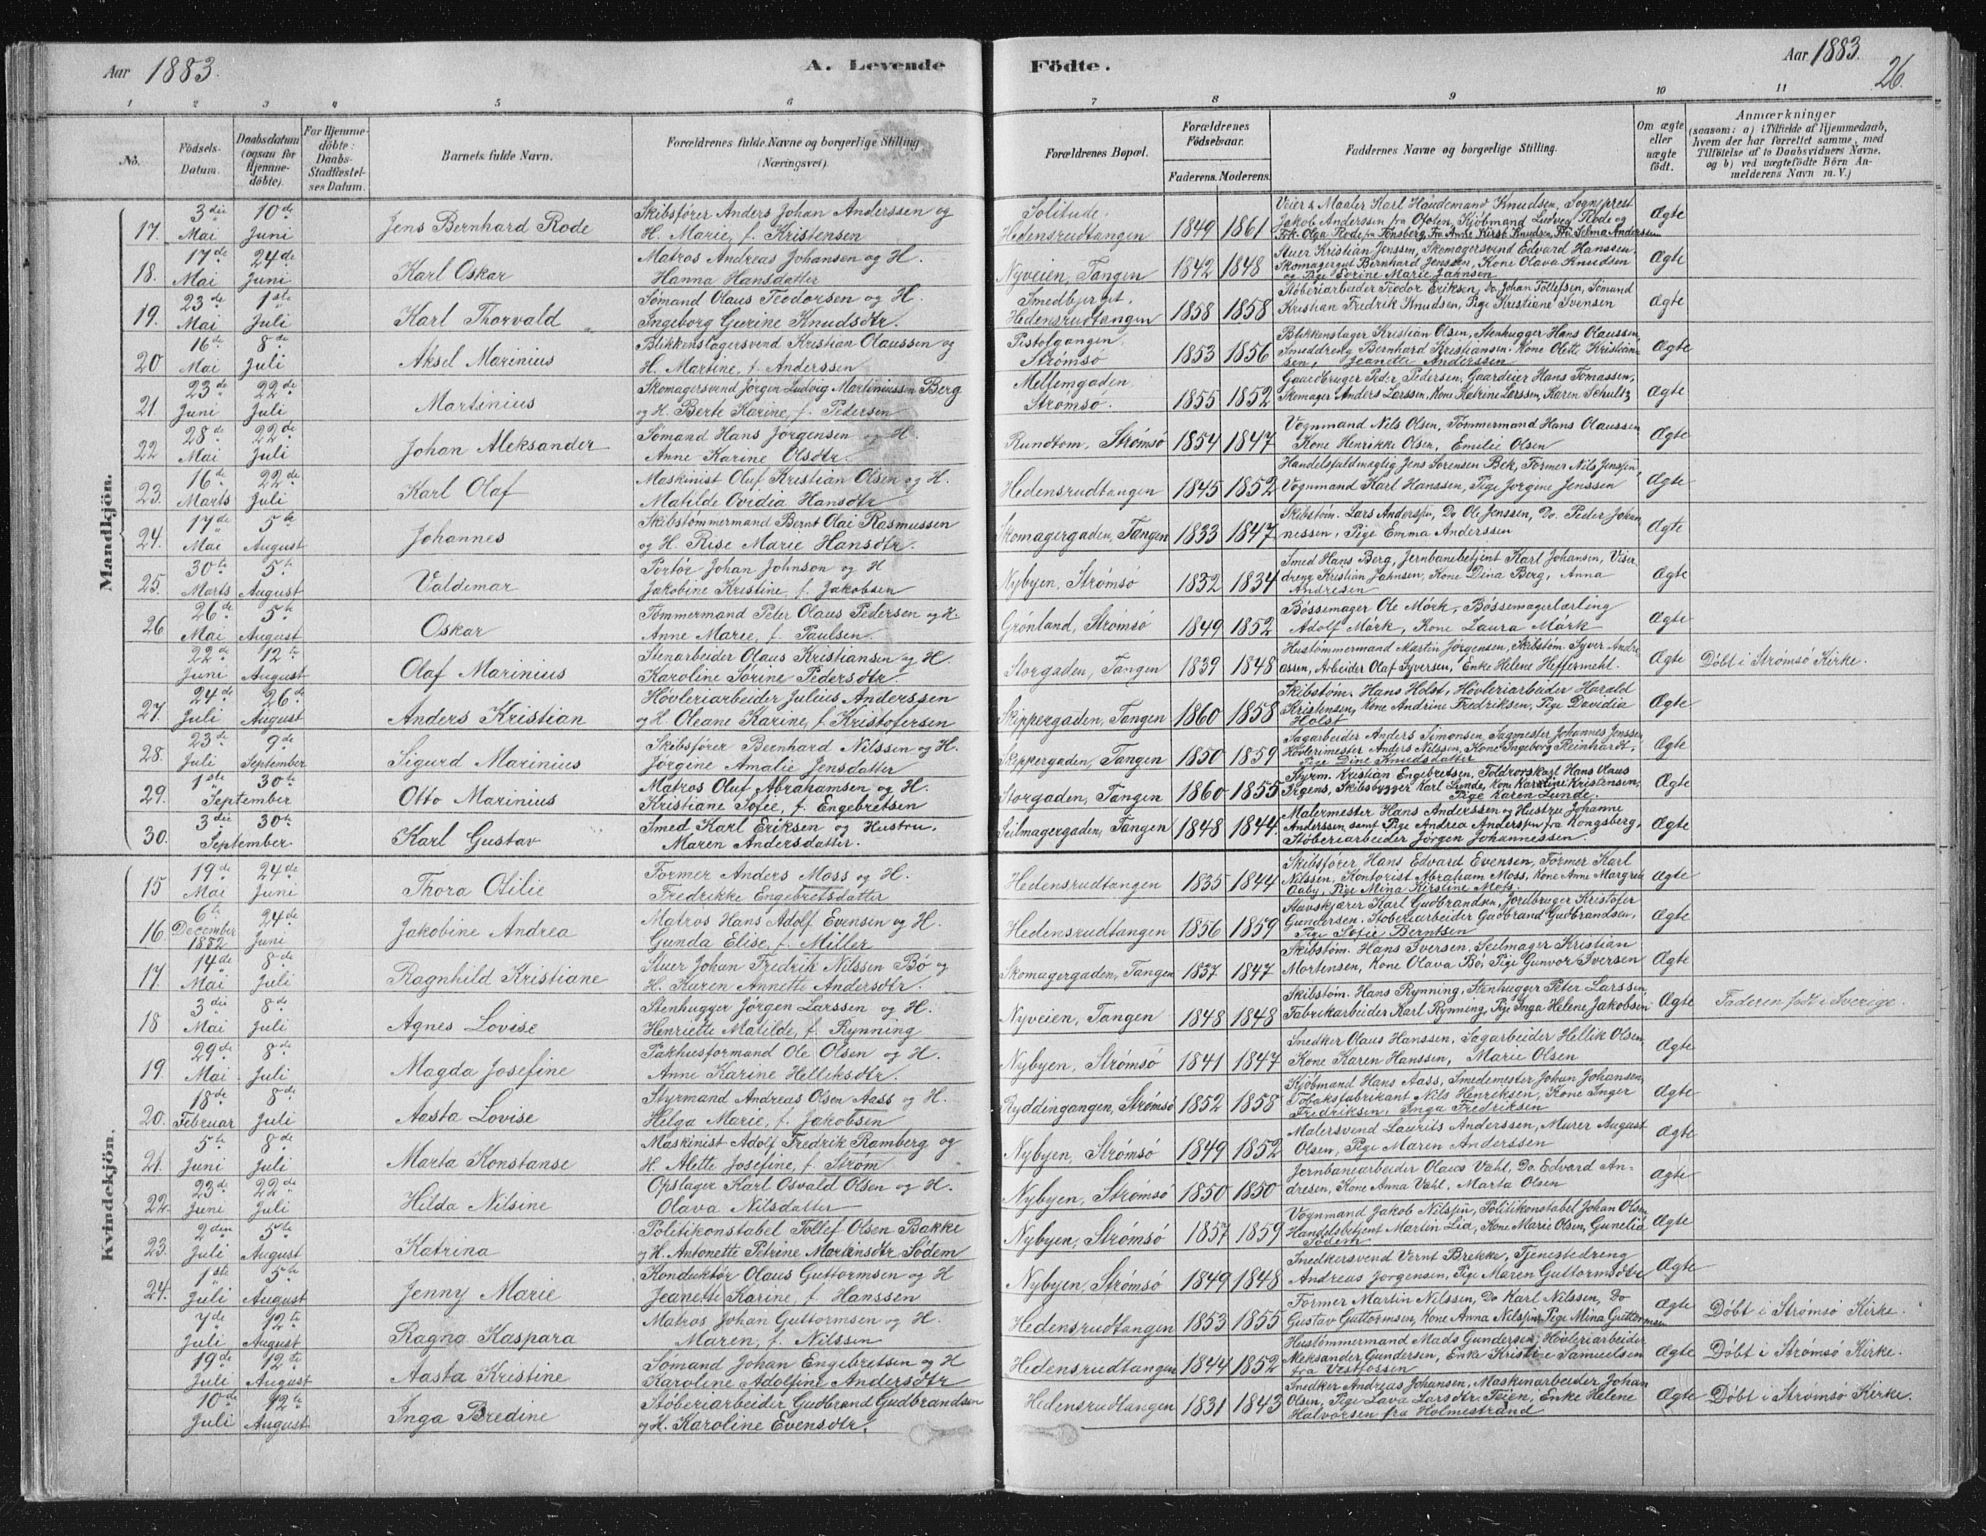 Aar 1883. A. Levende Födte. Aar 1883. 26.
1 2 3 4 5 6 7 8 9 10 11
No. Födsels-Datum. Daabsdatum (ogsaa for Hjemmedöbte). For Hjemmedöbte: Daabs-Stadfæstelses Datum. Barnets fulde Navn. Forældrenes fulde Navne og borgerlige Stilling (Næringsvei). Forældrenes Bopæl. Forældrenes Födselsaar. Faderens. Moderens. Faddernes Navne og borgerlige Stilling. Om ægte eller uægte födt. Anmærkninger (saasom: a) i Tilfælde af Hjemmedaab, hvem der har forrettet samme, med Tilföielse af to Daabsvidners Navne, og b) ved uægtefödte Börn Anmelderens Navn m. V.)
Mandkjön.
17. 3die Mai 10de Juni Jens Bernhard Rode Skibsfører Anders Johan Anderssen og H. Marie, f. Kristensen Solitude. Hedensrudtangen 1849 1861 Veier & Maaler Karl Haudemand Knudsen, Sognprest Jakob Anderssen fra Ofoten, Kjøbmand Ludvig Rode og Frk. Olga Rode fra Tønsberg, Fru Anne Kirst. Knudsen, Fru Selma Anderssen Ægte
18. 17de Mai 24de Juni Karl Oskar Matros Andreas Johansen og H. Hanna Hansdatter Nyveien, Tangen 1842 1848 Stuer Kristian Jenssen, Skomagersvend Edvard Hanssen, Skomagergut Bernhard Jenssen, Kone Olava Knudsen og Pige Sorine Marie Jahnsen Ægte
19. 23de Mai 1ste Juli Karl Thorvald Sømand Olaus Teodorsen og H. Ingeborg Gurine Knudsdtr. Smedbjerget, Hedensrudtangen 1858 1858 Støberiarbeider Teodor Eriksen, Do. Johan Tollefsen, Sømand Kristian Fredrik Knudsen, Pige Kristiane Svensen Ægte
20 16de Mai 8de Juli Aksel Marinius Blikkenslagersvend Kristian Olaussen og H. Martine, f. Anderssen Pistolgangen. Strømsø 1853 1856 Blikkenslager Kristian Olsen, Stenhugger Hans Olaussen, Smeddreng Bernhard Kristiansen, Kone Olette Kristiansen, Jeanette Anderssen Ægte
21 23de Juni 22de Juli Martinius Skomagersvend Jørgen Ludvig Martiniussen Berg og H. Berte Karine, f. Pedersen Mellemgaden. Strømsø. 1855 1852 Gaardbruger Peder Pedersen, Gaardeier Hans Tomassen, Skomager Anders Larssen, Kone Katrine Larssen, Karen Schultz Ægte
22 28de Mai 22de Juli Johan Aleksander Sømand Hans Jørgensen og H. Anne Karine Olsdtr. Rundtom, Strømsø 1854 1847 Vognmand Nils Olsen, Tømmermand Hans Olaussen Kone Henrikke Olsen, Emilie Olsen Ægte
23. 16de Marts 22de Juli Karl Olaf Maskinist Oluf Kristian Olsen og H. Matilde Ovidia Hansdtr Hedensrudtangen 1845 1852 Handelsfuldmægtig Jens Sørensen Bek, Former Nils Jenssen Vognmand Karl Hanssen, Pige Jørgine Jenssen Ægte
24. 17de Mai 5te August Johannes Skibstømmermand Bernt Olai Rasmussen og H. Rise Marie Hansdtr. Skomagergaden, Tangen 1833 1847 Skibstøm. Lars Anderssen, Do Ole Jenssen, Do. Peder Johannessen, Pige Emma Anderssen Ægte
25. 30te Marts 5te August Valdemar Portør Johan Johnson og H Jakobine Kristine, f. Jakobsen Nybyen, Strømsø 1832 1834 Smed Hans Berg, Jernbanebetjent Karl Johansen, Viserdreng Kristian Jahnsen, Kone Dina Berg, Anna Andresen Ægte
26 26de Mai 5te August Oskar Tømmermand Peter Olaus Pedersen og H. Anne Marie, f. Paulsen. Grønland, Strømsø 1849 1852 Bøssemager Ole Mørk, Bøssemagerlærling Adolf Mørk, Kone Laura Mørk Ægte
22de Juni 12te August Olaf Marinius Stenarbeider Olaus Kristiansen og H. Karoline Sørine Pedersdtr Storgaden, Tangen 1839 1848 Hustømmermand Martin Jørgensen, Skibstøm. Syver Andreassen, Arbeider Olaf Syversen, Enke Helene Heffermehl. Ægte Døbt i Strømsø Kirke.
27. 24de Juli 26de August Anders Kristian Høvleriarbeider Julius Anderssen og H. Oleane Karine, f. Kristofersen Skippergaden, Tangen 1860 1858 Skibstøm. Hans Holst, Høvleriarbeider Harald Kristensen, Kone Andrine Fredriksen, Pige Davidia Holst Ægte
28. 23de Juli 9de September Sigurd Marinius Skibsfører Bernhard Nilssen og H. Jørgine Amalie Jensdatter Skippergaden, Tangen 1850 1859 Sagarbeider Anders Simonsen, Sagmester Johannes Jenssen Høvlerimester Anders Nilssen, Kone Ingeborg Reinhardt, Pige Dine Knudsdatter Ægte
29. 1ste September 30te Otto Marinius Matros Oluf Abrahamsen og H. Kristiane Sofie, f. Engebretsen Storgaden, Tangen 1860 1855 Styrm. Kristian Engebretsen, Toldrorskarl Hans Claus Irgens, Skibsbygger Karl Lunde, Kone Karoline Kristensen, Pige Karen Lunde. Ægte
30. 3die September 30te Karl Gustav Smed Karl Eriksen og Hustru. Maren Andersdatter. Seilmagergaden, Tangen 1848 1844. Malermester Hans Anderssen og Hustru Johanne Anderssen samt Pige Andrea Anderssen fra Kongsberg, Støberiarbeider Jørgen Johannessen. Ægte
Kvindekjön.
15 19de Mai 24de Juni Thora Otilie Former Anders Moss og H. Fredrikke Engebretsdatter Hedensrudtangen 1835 1844 Skibsfører Hans Edvard Evensen, Former Karl Nilssen, Kontorist Abraham Moss, Kone Anne Margrete Aaby, Pige Mina Kirstine Moss. Ægte
16. 6te December 1882 24de Juni Jakobine Andrea Matros Hans Adolf Evensen og H. Gunda Elise, f. Miller Hedensrudtangen 1856 1859 Stavskjærer Karl Gudbrandsen, Jordbruger Kristofer Gundersen, Støberiarbeider Gudbrand Gudbrandsen, Pige Sofie Berntsen Ægte
17 14de Mai 8de Juli Ragnhild Kristiane Stuer Johan Fredrik Nilssen Bø og H. Karen Annette Andersdtr. Skomagergaden, Tangen 1837 1847 Skibstøm. Hans Iversen, Seilmager Kristian Mortensen, Kone Olava Bø, Pige Gunvor Iversen Ægte
18 3die Mai 8de Juli Agnes Lovise Stenhugger Jørgen Larssen og H. Henriette Matilde, f. Rynning Nyveien, Tangen 1848 1848 Skibstøm. Hans Rynning, Stenhugger Peter Larssen, Fabrikarbeider Karl Rynning, Pige Inga Helene Jakobsen Ægte Faderen født i Sverige.
19. 29de Mai 8de Juli Magda Josefine Pakhusformand Ole Olsen og H. Anne Karine Helliksdtr. Nybyen, Strømsø 1841 1847 Snedker Olaus Hanssen, Sagarbeider Hellik Olsen, Kone Karen Hanssen, Marie Olsen Ægte
20. 18de Februar 8de Juli Aasta Lovise Styrmand Andreas Olsen Aass og H. Helga Marie, f. Jakobsen Ryddingangen, Strømsø 1852 1858 Kjøbmand Hans Aass, Smedemester Johan Johansen, Tobaksfabrikant Nils Henriksen, Kone Inger Fredriksen, Inga Fredriksen Ægte
21. 5te Juni 8de Juli Marta Konstanse Maskinist Adolf Fredrik Ramberg og H. Alette Josefine, f. Strøm Nybyen, Strømsø 1849 1852 Malersvend Laurits Anderssen, Murer August Olsen, Pige Maren Anderssen Ægte
22. 23de Juni 22de Juli Hilda Nilsine Opslager Karl Osvald Olsen og H. Olava Nilsdatter Nybyen, Strømsø 1850 1850 Jernbanearbeider Olaus Vahl, Do. Edvard Andresen, Kone Anna Vahl, Marta Olsen Ægte
23. 2den Juli 5te August Katrina Politikonstabel Tollef Olsen Bakke og H. Antonette Petrine Martinsdtr Södem Nybyen, Strømsø 1857 1859 Vognmand Jakob Nilssen, Politikonstabel Johan Olsen, Handelsbetjent Martin Lia, Kone Marie Olsen, Gunelia Södem Ægte
24. 1ste Juli 5te August Jenny Marie Konduktør Olaus Guttormsen og H Jeanette Karine, f. Hanssen Nybyen, Strømsø 1849 1848 Snedkersvend Vernt Brekke, Tjenestedreng Andreas Jørgensen, Pige Maren Guttormsdtr Ægte
7de Juli 12te August Ragna Kaspara Matros Johan Guttormsen og H. Maren, f. Nilssen Hedensrudtangen 1853 1855 Former Martin Nilssen, Do Karl Nilssen, Do Gustav Guttormsen, Kone Anna Nilssen, Pige Mina Guttormsen Ægte Döbt i Strömsö Kirke.
19de Juli 12te August Aasta Kristine Sømand Johan Engebretsen og H Karoline Adolfine Andersdtr Hedensrudtangen 1844 1852 Hustømmermand Mads Gundersen, Høvleriarbeider Aleksander Gundersen, Enke Kristine Samuelsen fra Vestfossen Ægte Döbt i Strömsö Kirke.
10de Juli 12te August Inga Bredine Støberiarbeider Gudbrand Gudbrandsen og H. Karoline Evensdtr. Hedensrudtangen 1831 1843 Snedker Andreas Johansen, Maskinarbeider Johan Olsen, Pige Lava Larsdtr Teien, Enke Helene Halvorsen fra Holmestrand Ægte Döbt i Strömsö Kirke.